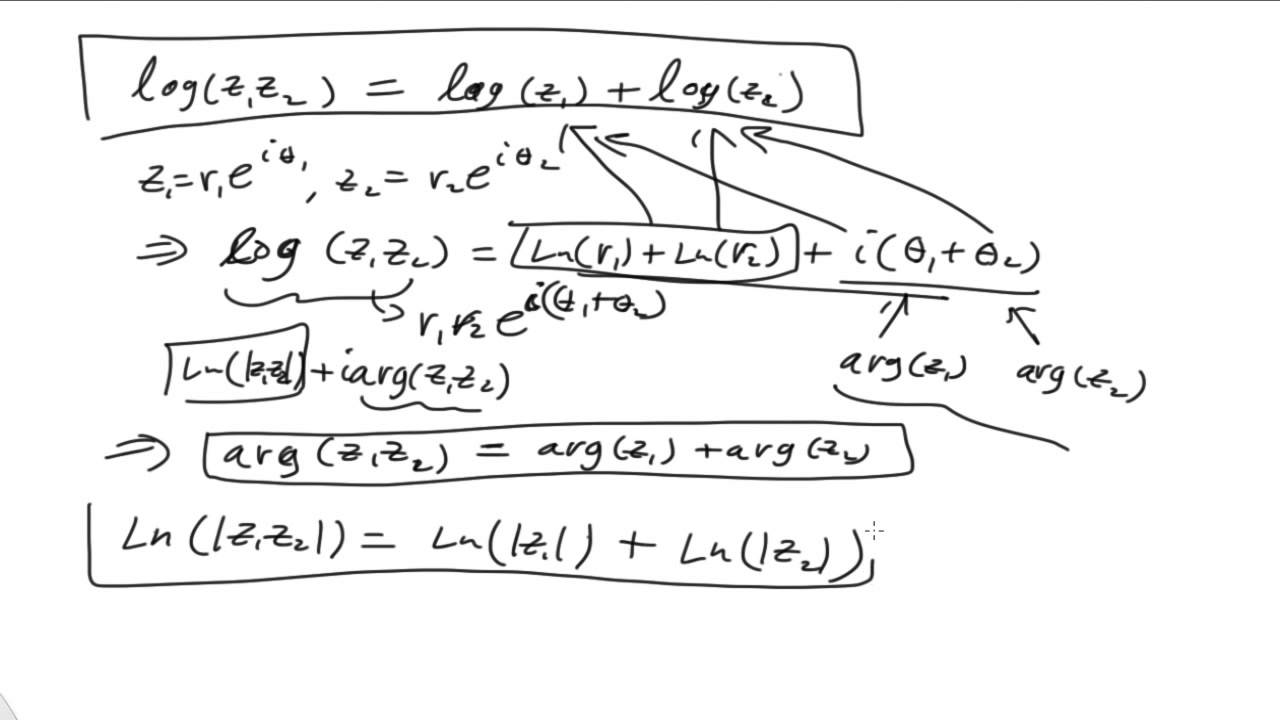 log(z₁z₂) = log(z₁) + log(z₂)
z₁ = r₁e^{iθ₁}, z₂ = r₂e^{iθ₂}
⇒ log(z₁z₂) = Ln(r₁) + Ln(r₂) + i(θ₁ + θ₂)
r₁r₂e^{i(θ₁+θ₂)}
Ln(|z₁z₂|) + iarg(z₁z₂)
arg(z₁) arg(z₂)
⇒ arg(z₁z₂) = arg(z₁) + arg(z₂)
Ln(|z₁z₂|) = Ln(|z₁|) + Ln(|z₂|)